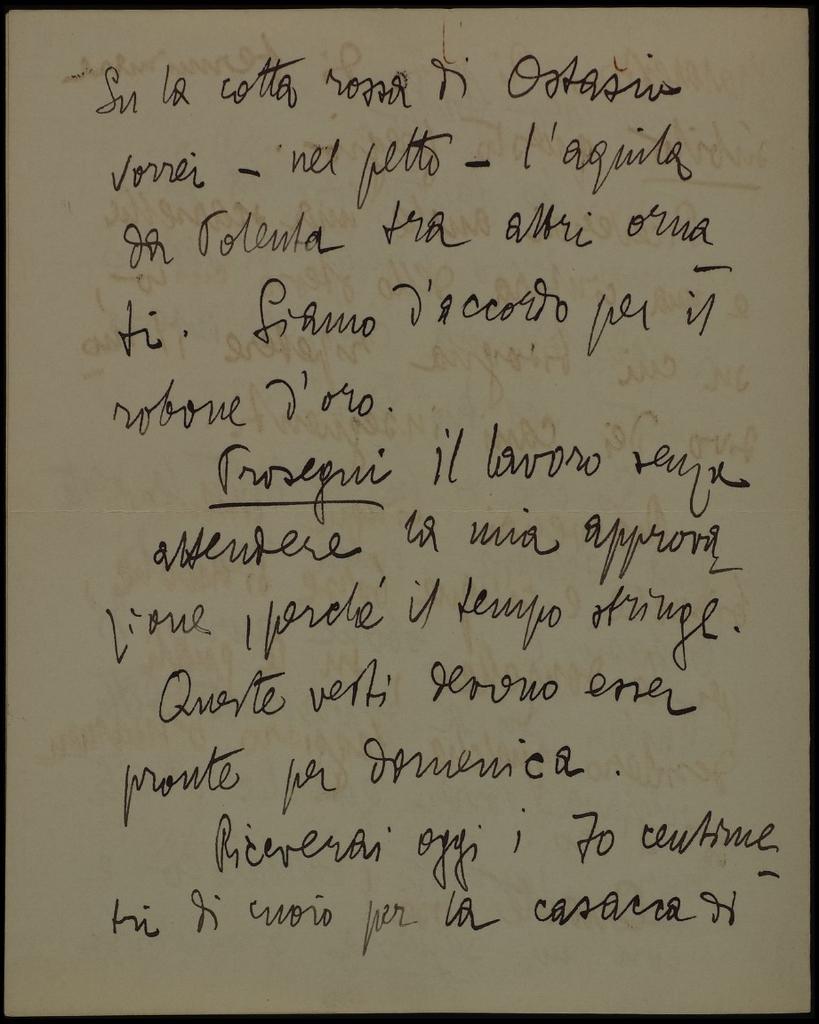 Su la cotta rossa di Ostasio
vorrei – nel petto – l'aquila
da Polenta tra altri orna
ti. Siamo d'accordo per il
robone d'oro.
Prosegui il lavoro senza
attendere la mia approva
zione, perché il tempo stringe.
Queste vesti devono esser
pronte per domenica.
Riceverai oggi i 70 centime
tri di cuoio per la casacca di